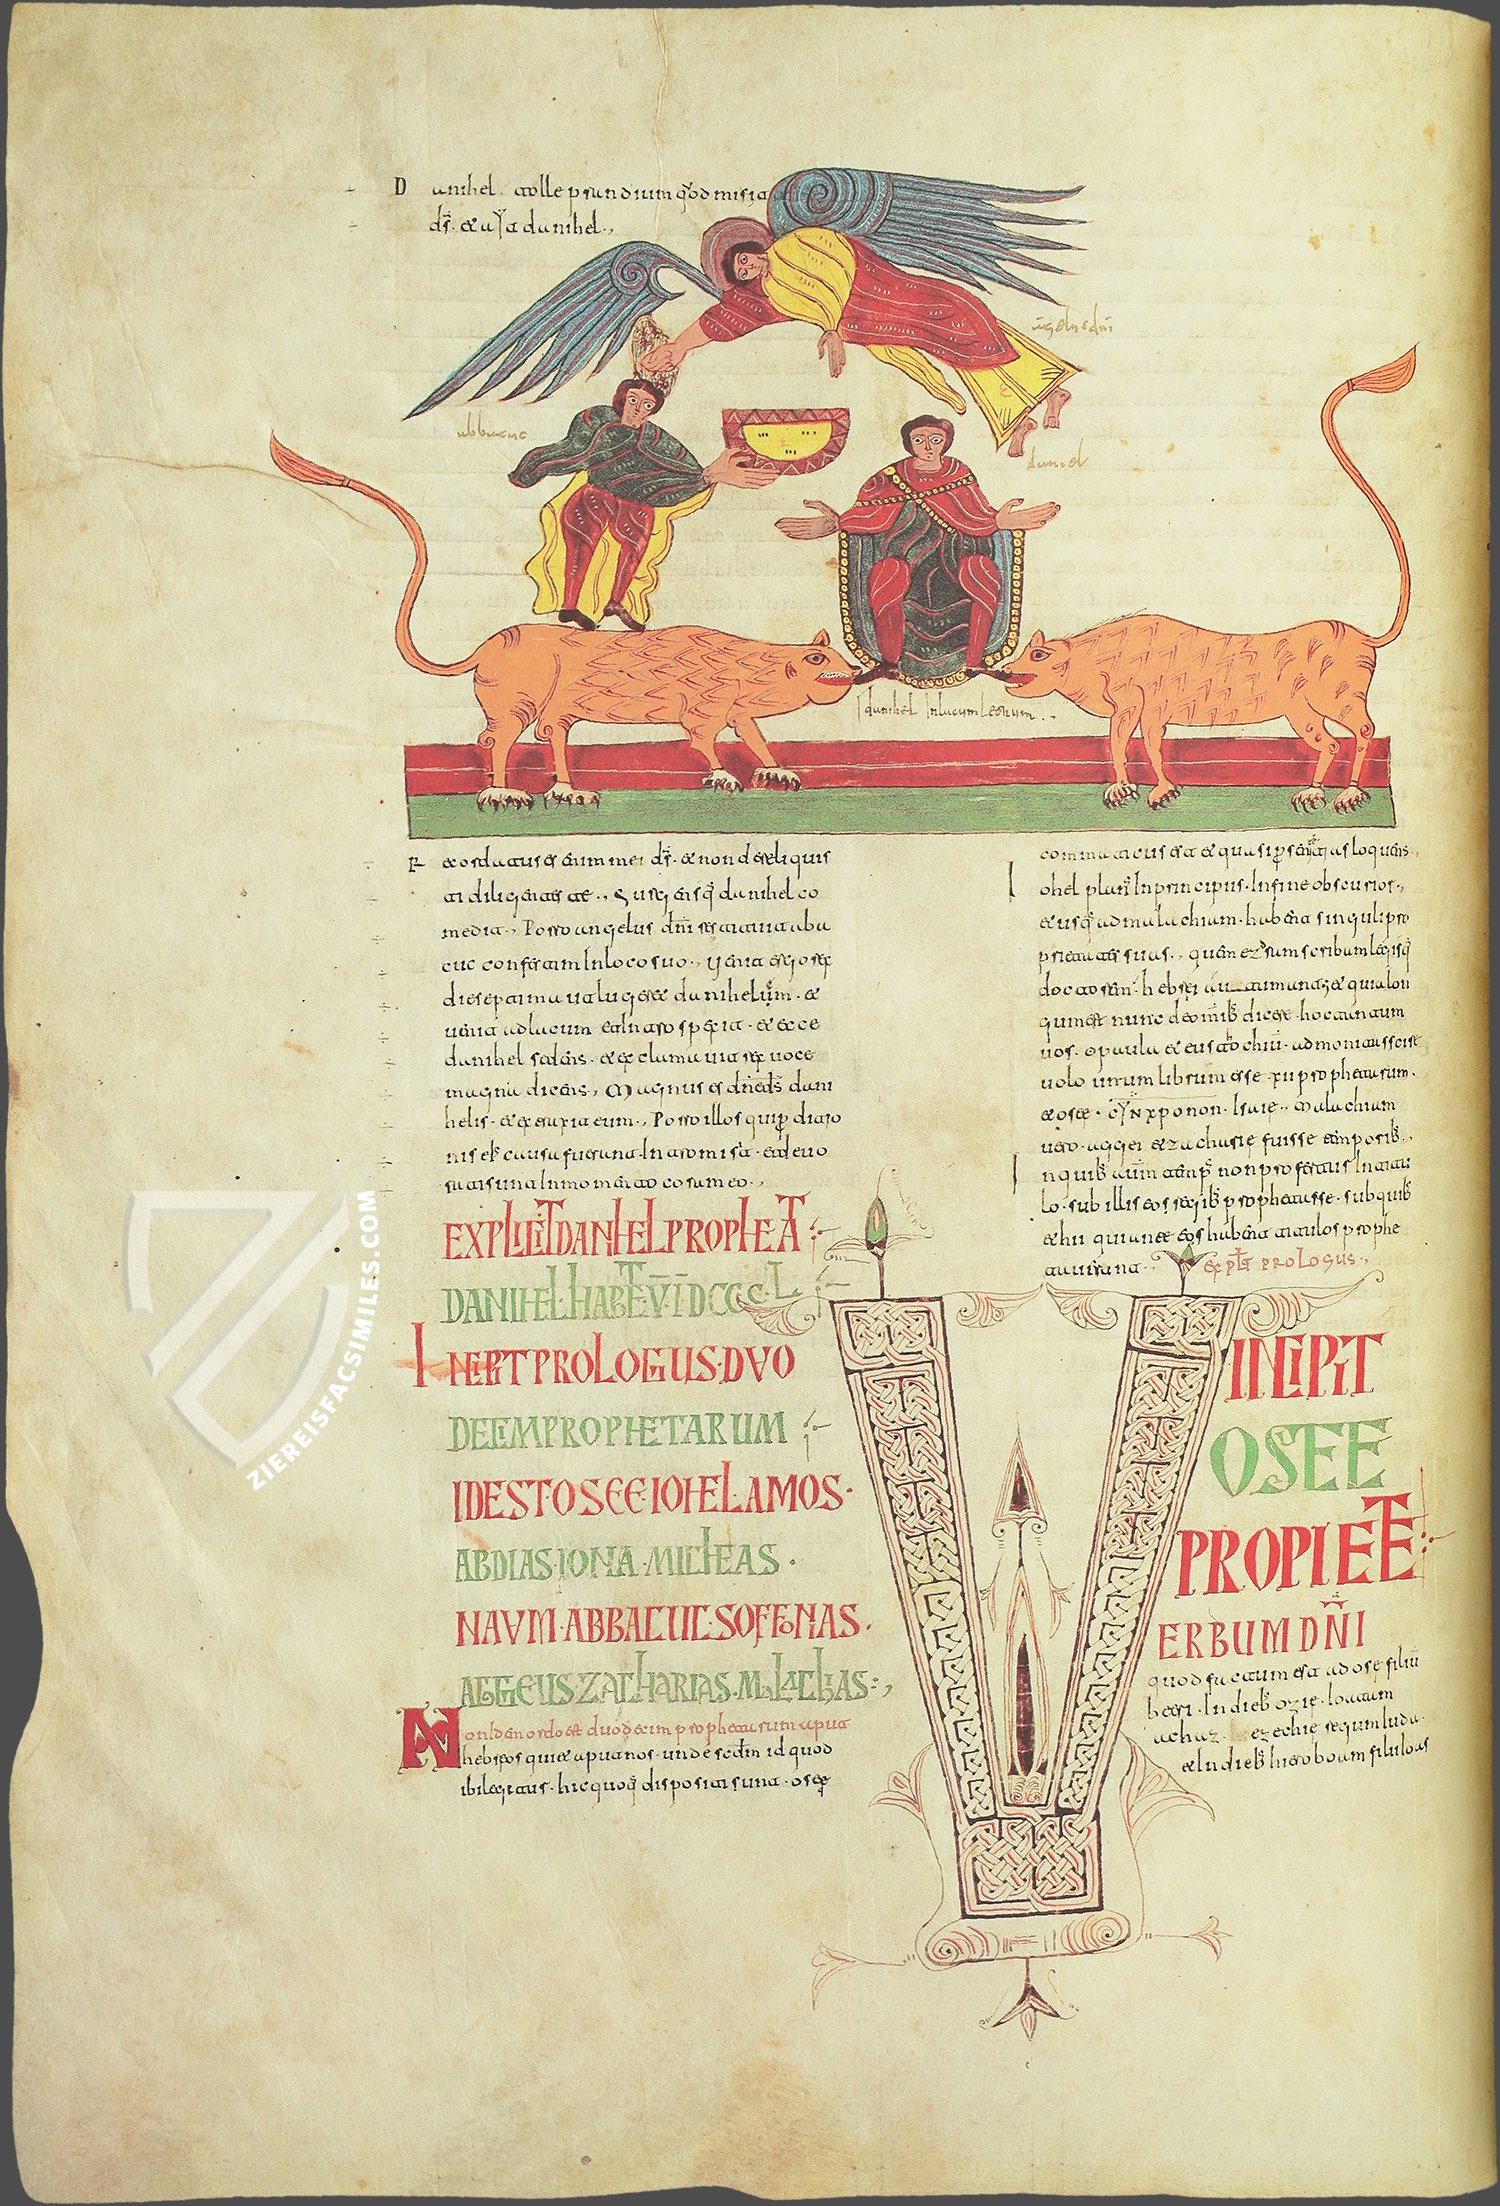 D anihel. tolle prandium quod misit
ds. et ayt danihel.
angelus dni
abbacuc
daniel
danihel In lacum Leonum
R ecordatus es enim mei ds. et non dereliquis
ti diligentes te., Surgensque danihel co
medit., Porro angelus dni restituit aba
cuc confestim In loco suo., Venit ergo rex
die septima ut lugeret danihelum. et
venit ad lacum et Introspexit. et ecce
danihel sedens. et exclamavit rex voce
magna dicens, Magnus es dne ds dani
helis. et extraxit eum., Porro illos qui perditio
nis eius causa fuerunt. Intromisit. et devo
rati sunt In momento coram eo.,
EXPLICIT DANIHEL PROPHETA
DANIHEL HABET V. I DCCCL
INCIPIT PROLOGUS. DUO
DECIM PROPHETARUM
ID EST. OSEE. IOHEL. AMOS.
ABDIAS. IONA. MICHEAS.
NAUM. ABBACUC. SOFFONIAS.
AGGEUS. ZACHARIAS. MALACHIAS:,
Non Idem ordo est duodecim prophetarum aput
hebreos qui et aput nos. unde secdm id quod
ibi legitur. hic quoque dispositi sunt. osee
commaticus est et quasi per sententias loquens.,
Iohel planus In principiis. In fine obscurior.,
et usque ad malachium. habent singuli pro
prietates suas.,
doctorem hebrei autumant. et quia lon
gum est nunc de omnibus dicere. hoc tantum
vos. o paula et eustochium. admonitas esse
volo unum librum esse xii prophetarum.
et osee. CYNXPONON. Isaie., Malachium
vero. aggei et zacharie fuisse temporibus.,
In quibus autem tempus non prefertur In titu
lo. sub illis eos regibus prophetasse. sub quibus
et hii qui ante eos habent titulos prophe
taverunt.,
explt PROLOGUS.,
INCIPIT
OSEE
PROPHETE
VERBUM DNI
quod factum est ad osee filium
beeri. In diebus ozie. Ioatam
achaz. ezechie regum Iuda.
et In diebus hieroboam filii Ioas
ZIEREISFACSIMILES.COM